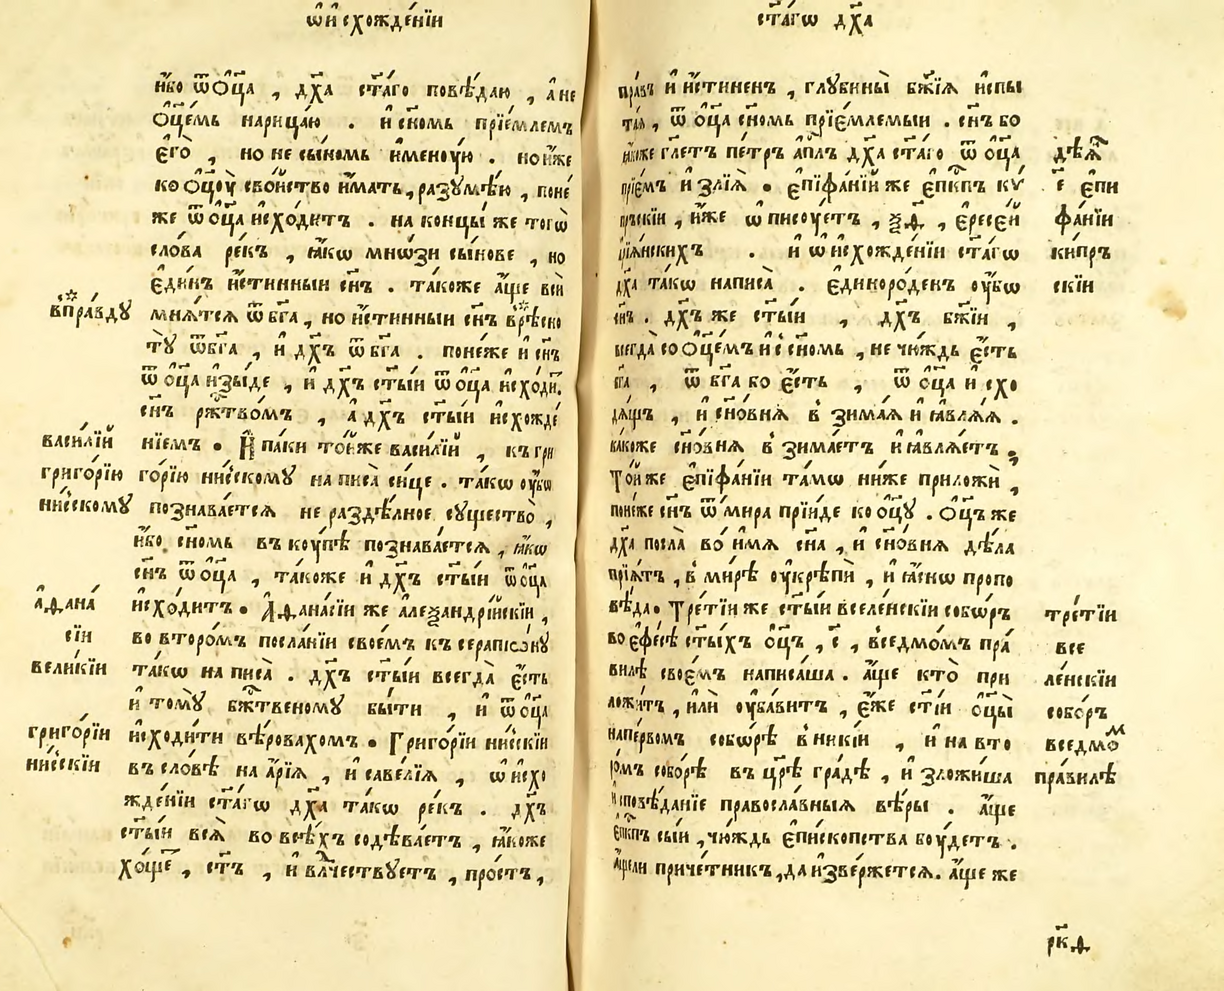 ѿ исхожде́нїи
и҆́бо ѿ ѻ҆ц҃а , дх҃а ст҃а́го повѣ́даю , а҆ не
ѻ҆ц҃е́мь нарица́ю . и҆ сн҃омь прїе́млемъ
є҆го̀ , но не сы́номь и҆меноу́ю . но и҆́же
ко ѻ҆ц҃оу̀ сво́йство и҆́мать , разꙋмѣ́ю , поне́
же ѿ ѻ҆ц҃а и҆схо́дитъ . на концы́ же того̀
сло́ва ре́къ , ꙗ҆́кѡ мно́ѕи сы́нове , но
є҆ди́нъ и҆́стинныи сн҃ъ . та́коже а҆́ще всѝ
мнѧ́тсѧ ѿ бг҃а , но и҆́стинныи сн҃ъ
тꙋ̀ ѿ бг҃а , и҆ дх҃ъ ѿ бг҃а . поне́же и҆ сн҃ъ
ѿ ѻ҆ц҃а и҆зы́де , и҆ дх҃ъ ст҃ы́и ѿ ѻ҆ц҃а и҆схо́ди .
сн҃ъ рж҃тво́мъ , а҆ дх҃ъ ст҃ы́и и҆схожде́
нїемъ . И҆ па́ки то́йже васи́лїй , къ гри
го́рїю ни́сскомꙋ написа̀ си́це . та́кѡ оу҆́бѡ
познава́етсѧ не раздѣ́лное сꙋщество̀ ,
и҆́бо сн҃омь въ коу́пѣ познава́етсѧ , ꙗ҆́кѡ
сн҃ъ ѿ ѻ҆ц҃а , та́коже и҆ дх҃ъ ст҃ы́и ѿ ѻ҆ц҃а
и҆схо́дитъ . А҆ѳана́сїи же а҆леѯандрі́йскїи ,
во второ́мъ посла́нїи свое́мъ къ серапїо́нꙋ
та́кѡ написа̀ . дх҃ъ ст҃ы́и всегда̀ є҆́сть
и҆ томꙋ̀ бж҃твеномꙋ бы́ти , и҆ ѿ ѻ҆ц҃а
и҆сходи́ти вѣ́ровахомъ . Григо́рїи ни́сскїи
въ сло́вѣ на а҆́рїѧ , и҆ саве́лїѧ , ѡ҆ и҆схо
жде́нїи ст҃а́гѡ дх҃а та́кѡ ре́къ . дх҃ъ
ст҃ы́и всѧ̀ во всѣ́хъ содѣва́етъ , ꙗ҆́коже
хо́ще , ст҃ъ , и҆ влⷣчествꙋетъ , про́стъ ,
впра́вдꙋ
васи́лїй
григо́рїю
ни́сскомꙋ
а҆ѳана́
сїи
вели́кїи
григо́рїи
ни́сскїи
ст҃а́гѡ дх҃а
пра́въ и҆ и҆́стиненъ , глꙋбины̀ бж҃їѧ и҆спы
та́ѧ , ѿ ѻ҆ц҃а сн҃омь прїе́млемыи . сн҃ъ бо
ꙗ҆́коже гл҃етъ пе́тръ а҆пл҃ъ дх҃а ст҃а́го ѿ ѻ҆ц҃а
прїе́мъ и҆злїѧ̀ . є҆пїфа́нїй же є҆пкⷭ҇пъ кѵ́
прьскїи , и҆́же ѡ҆писоу́етъ , ѯ҃д , є҆́ресей
а҆рїа́нскихъ . и҆ ѡ҆ и҆схожде́нїи ст҃а́гѡ
дх҃а та́кѡ написа̀ . є҆диноро́денъ оу҆́бѡ
сн҃ъ . дх҃ъ же ст҃ы́и , дх҃ъ бж҃їи ,
всегда̀ со ѻ҆ц҃е́мъ и҆ с̾ сн҃омь , не чю́ждь є҆́сть
бг҃а , ѿ бг҃а бо є҆́сть , ѿ ѻ҆ц҃а и҆схо
дѧ́щъ , и҆ сн҃о́внѧ в̾зима́ѧ и҆ ꙗ҆влѧ́ѧ .
ꙗ҆́коже сн҃о́внѧ в̾зима́етъ и҆ ꙗ҆влѧ́етъ .
То́й же є҆пїфа́нїи та́мѡ ни́же приложѝ ,
поне́же сн҃ъ ѿ ми́ра прїи́де ко ѻ҆ц҃ꙋ . Ѻ҆ц҃ъ же
дх҃а посла̀ во и҆́мѧ сн҃а , и҆ сн҃о́внѧ дѣ́ла
прїѧ́тъ , в̾ ми́рѣ оу҆крѣпѝ , и҆ ꙗ҆́снѡ пропо
вѣ́да . Тре́тїи же ст҃ы́и вселе́нскїи собѡ́ръ
во є҆фе́сѣ ст҃ы́хъ ѻ҆ц҃ъ , с҃ , в̾седмо́мъ пра́
вилѣ свое́мъ написа́ша . а҆́ще кто̀ при
ложи́тъ , и҆лѝ оу҆ба́витъ , є҆́же ст҃і́и ѻ҆ц҃ы̀
на пе́рвомъ собѡ́рѣ в̾ ники́и , и҆ на вто
ро́мъ собо́рѣ въ цр҃ѣ гра́дѣ , и҆зложи́ша
и҆сповѣ́данїе правосла́вныѧ вѣ́ры . а҆́ще
є҆пкⷭ҇пъ сы́и , чю́ждь є҆пи́скопства боу́детъ .
а҆́щели приче́тникъ , да и҆зве́ржетсѧ . а҆́ще же
дѣѧⷩ҇
є҆пи
фа́нїи
ки́пръ
скїи
тре́тїи
все
ле́нскїи
собо́ръ
вседмоⷨ
пра́вилѣ
рк҃д